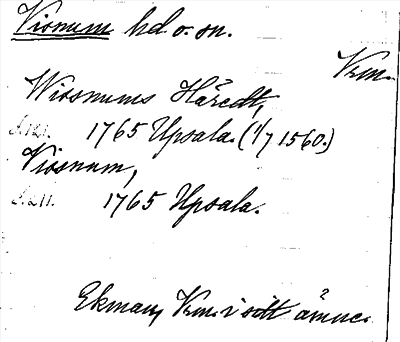 Visnum hd o. sn.
Vrm.
Wissnums Häredt,
s. 121. 1765 Upsala. (1/7 1560.)
Visnum,
s. 211. 1765 Upsala.
Ekman, Vrm. i sitt ämne.